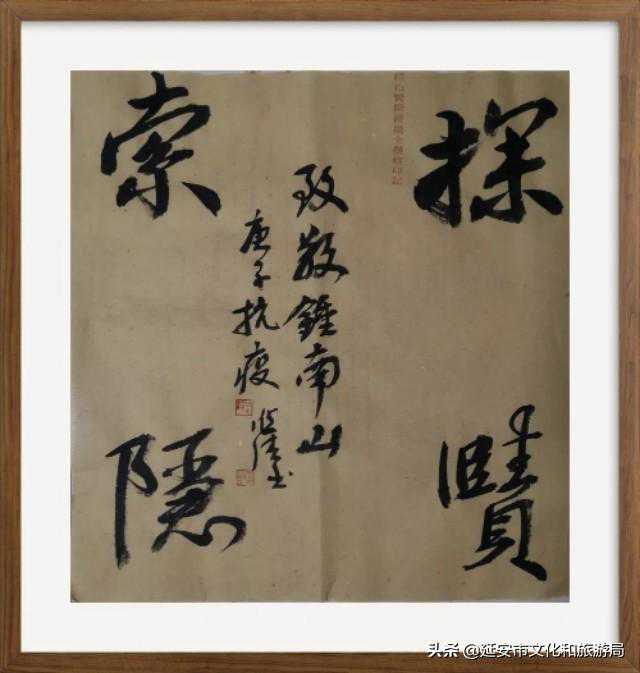 探賾
索隱
致敬鍾南山
庚子抗疫
头条 @延安市文化和旅游局